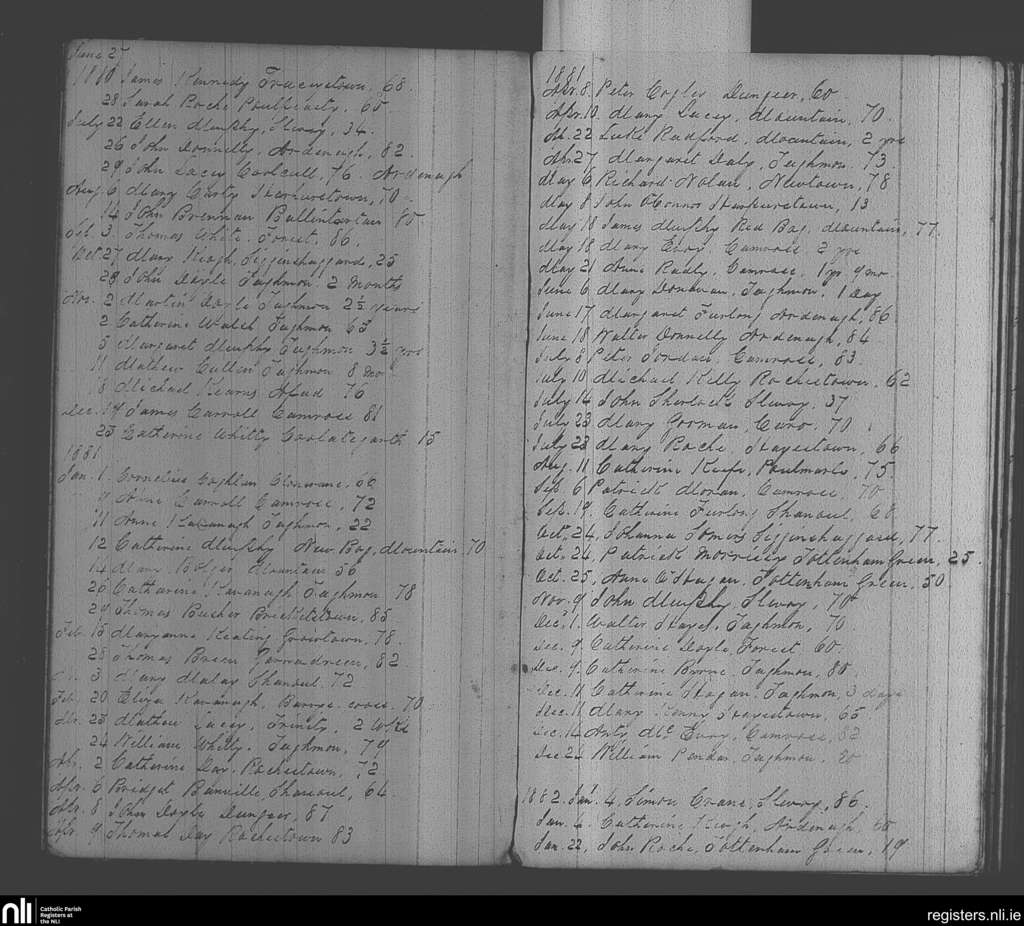 June 27
1880 James Kennedy Traceystown, 68.
28 Sarah Roche Poulpeasty, 65
July 22 Ellen Murphy, Slevoy, 34.
26 John Donnelly, Ardenagh, 82.
29 John Lacey Coolcull, 76. Ardenagh
Aug. 6 Mary Carty Harveystown, 70
14 John Brennan Ballintartan 85
Oct. 3. Thomas White Forest, 86.
Oct. 27 Mary Keogh, Sigginshaggard, 25
28 John Doyle Taghmon 2 Months
Nov. 2 Martin Doyle Taghmon 2½ years
2 Catherine Walsh Taghmon 63
5 Margaret Murphy Taghmon 3½ yrs
11 Mathew Cullen Taghmon 8 Mo
18 Michael Kearns 76
Dec. 19 James Carroll Camross 81
23 Catherine Whitty 15
1881
Jan. 1. Cornelius Coghlan 66
9 Anne Carroll Camross, 72
11 Anne Kavanagh Taghmon, 22
12 Catherine Murphy New Bog, Mountain 70
14 Mary Bolger Mountain 56
26 Catherine Kavanagh Taghmon 78
29 Thomas Busher 85
Feb. 15 Maryanne Keating Growtown, 78
28 Thomas Breen Garradreen, 82
3 Mary Malay Shanoul, 72
Feb. 20 Eliza Kavanagh, Barrys cross, 70
Mr. 23 Mathew Lacey, Trinity, 2 Wks
24 William Whitty, Taghmon, 79
Apr. 2 Catherine Day, Rochestown, 72
Apr. 6 Bridget Banville, Shanoul, 64
Apr. 8 John Doyle Dungeer, 87
Apr. 9 Thomas Day Rochestown 83
1881
Apr. 8. Peter Cogley Dungeer, 60
Apr. 10. Mary Lacey, Mountain, 70.
Ap. 22 Luke Radford, Mountain, 2 yrs
Apr. 27, Margaret Daly, Taghmon 73
May 6 Richard Nolan, Newtown, 78
May 8 John O'Connor Harveystown, 13
May 18 James Murphy Red Bog, Mountain, 77.
May 18 Mary Camross 2 yrs
May 21 Anne Camross, 1 yr 9 mo.
June 6 Mary Donovan, Taghmon, 1 Day
June 17 Margaret Furlong Ardenagh, 86
June 18 Walter Donnelly Ardenagh, 84
July 8 Peter Jordan, Camross, 83.
July 10 Michael Kelly Rochestown, 62
July 14 John Sherlock Slevoy, 37
July 23 Mary Gorman, 70
July 23 Mary Roche Hayestown, 66
Aug. 11 Catherine Keefe, Poulmarle, 75.
Sep. 6 Patrick Moran, Camross, 70
Sep. 19. Catherine Furlong Shanoul, 68
Oct. 24, Johanna Somers Sigginshaggard, 77.
Oct. 24, Patrick Morrissey Tottenham Green, 25.
Oct. 25, Anne O'Hagan, Tottenham Green, 50
Nov. 9 John Murphy, Slevoy, 70
Dec. 1. Walter Hayes, Taghmon, 70
Dec. 9. Catherine Doyle, Forest, 60.
Dec. 9. Catherine Byrne, Taghmon, 80.
Dec. 11 Catherine Hagan, Taghmon, 3 days
Dec. 11 Mary Kenny Hayestown, 65
Dec. 14 Camross, 82
Dec 24 William Taghmon, 80
1882. Jan. 4, Simon Crane, Slevoy, 86.
Jan. 4. Catherine Keogh, Ardenagh, 65
Jan. 22, John Roche, Tottenham Green, 19
nli
Catholic Parish
Registers at
the NLI
registers.nli.ie